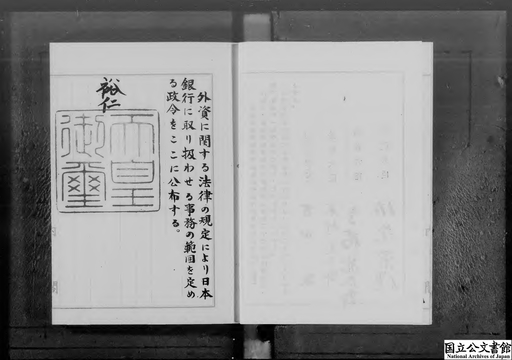 外資に関する法律の規定により日本
銀行に取り扱わせる事務の範囲を定め
る政令をここに公布する。
裕仁
天皇
御璽
国立公文書館
National Archives of Japan